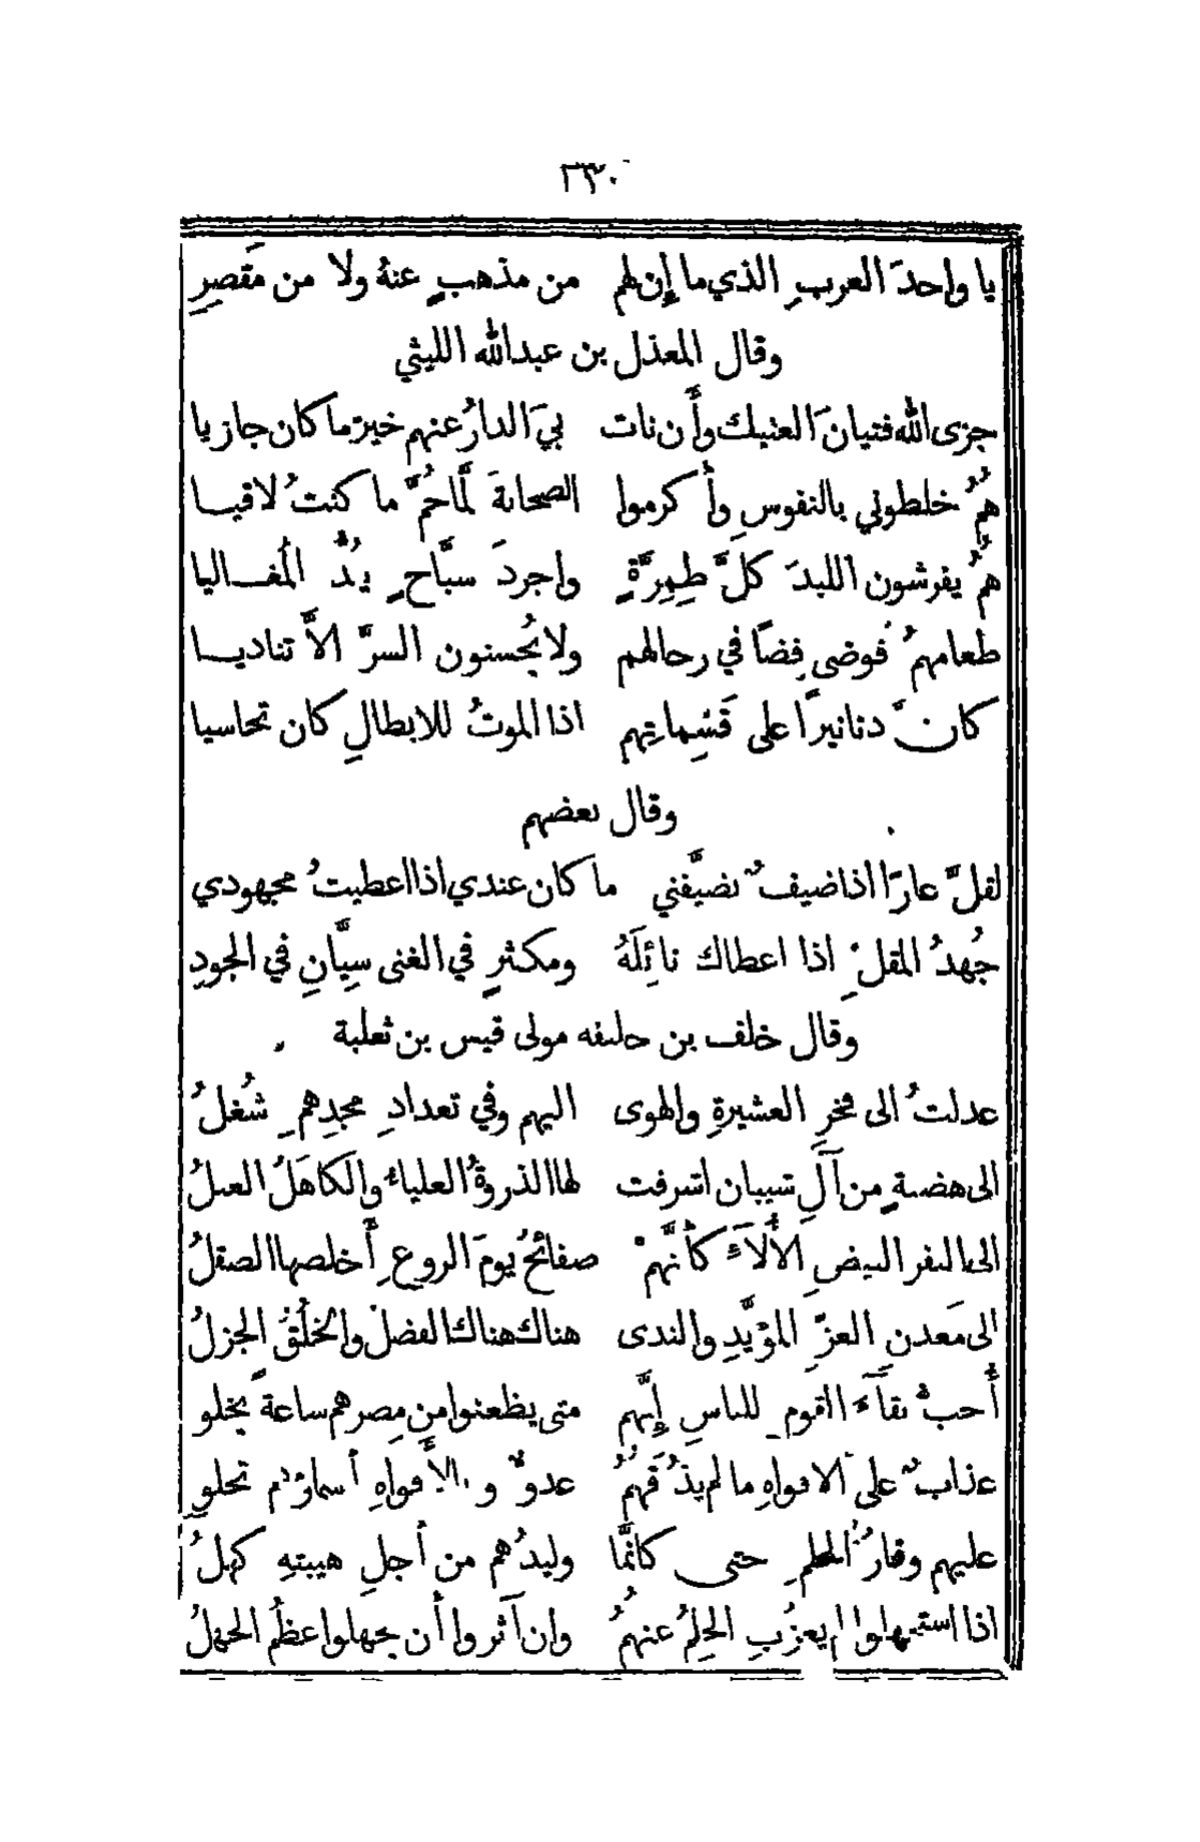 ٢٣٠
يا واحدَ العربِ الذي ما إِن لهم من مذهبٍ عنهُ ولا من مَقصرِ
وقال المعذل بن عبدالله الليثي
جزى الله فتيانَ العتيك وأَن نات بيَ الدارُ عنهم خيرَ ما كان جازيا
همُ خلطوني بالنفوسِ وأَكرموا الصحابةَ لمَّا حُمَّ ما كنتُ لاقيا
همُ يفرشون اللبدَ كلَّ طِمِرَّةٍ واجردَ سبَّاحٍ يبُذُّ المُغاليا
طعامهمُ فوضى فِضًا في رحالهم ولا يُحسنون السرَّ الاَّ تناديا
كانَّ دنانيرًا على قَسِماتِهم اذا الموتُ للابطالِ كان تحاسيا
وقال بعضهم
لقلَّ عارًا اذا ضيفٌ تضيَّفني ما كان عندي اذا اعطيتُ مجهودي
جُهدُ المقلِّ اذا اعطاك نائِلَهُ ومكثرٍ في الغنى سِيَّانِ في الجودِ
وقال خلف بن خليفه مولى قيس بن ثعلبة
عدلتُ الى فخرِ العشيرةِ والهوى اليهم وفي تعدادِ مجدِهمِ شُغلُ
الى هضبةٍ من آلِ شيبان اشرفت لها الذروةُ العلياءُ والكاهَلُ العبلُ
الى النفر البيضِ الأَلآءِ كأَنَّهمْ صفائحُ يومَ الروعِ أَخلصها الصقلُ
الى مَعدن العزِّ المؤَيَّدِ والندى هناك هناك الفضلُ والخلُقُ الجزلُ
أُحبُّ بقآءَ القومِ للناسِ إِنَّهم متى يظعنوا من مِصرهم ساعةً يخلو
عذابٌ على الافواهِ ما لم يذُقهمُ عدوٌّ وبالأَفواهِ أَسماؤهم تحلو
عليهم وقارُ الحلمِ حتى كانَّما وليدُهم من أَجلِ هيبتهِ كهلُ
اذا استُجهلوا لم يعزُبِ الحِلمُ عنهمُ وان آثروا أَن يجهلوا عظُم الجهلُ